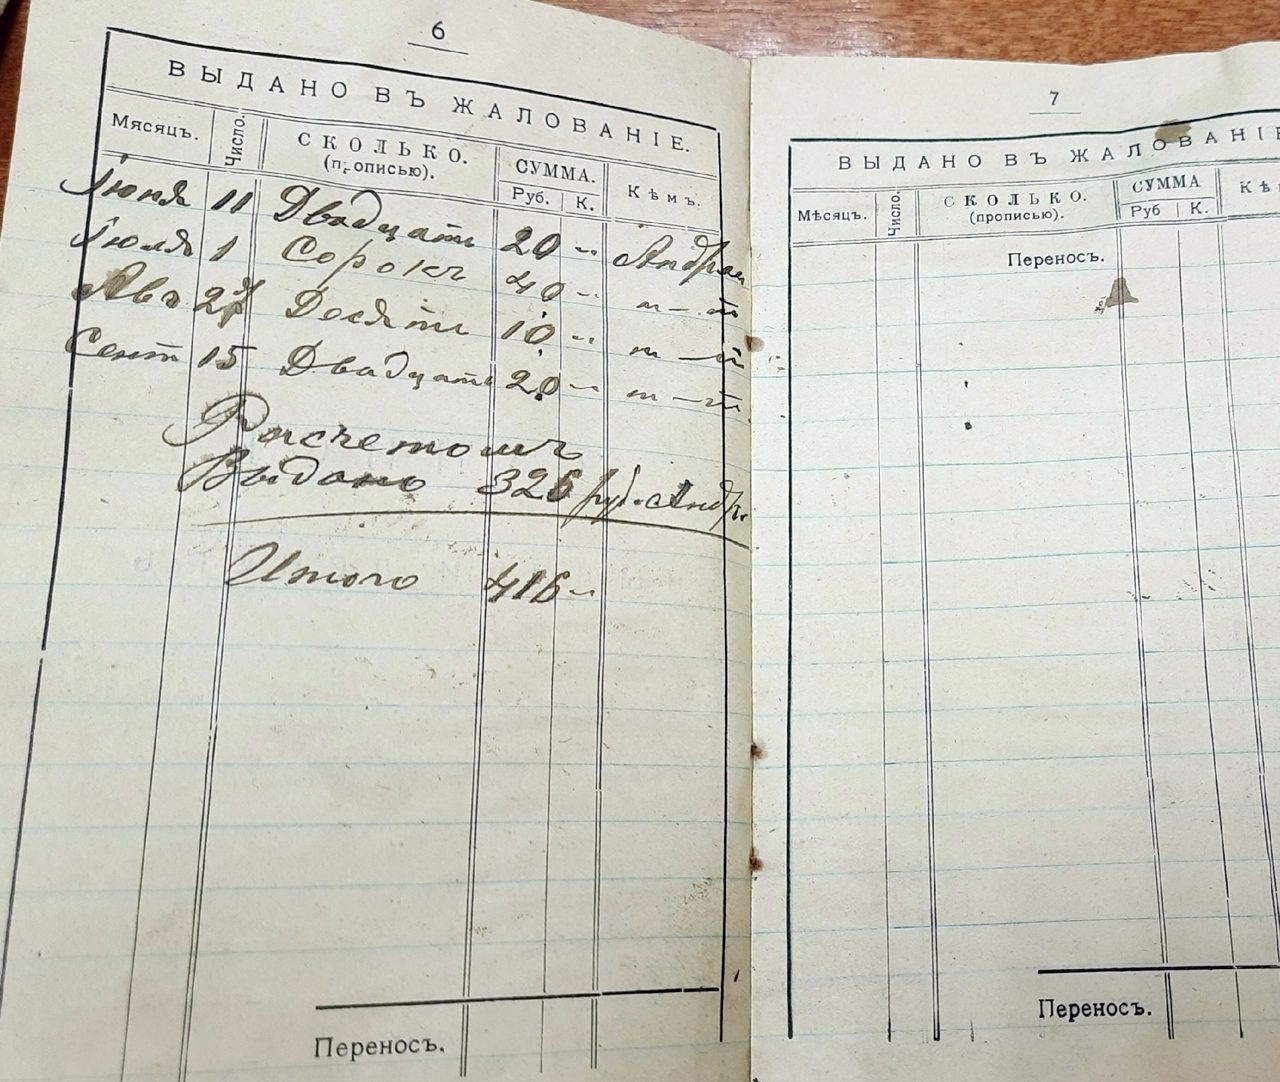 6
ВЫДАНО ВЪ ЖАЛОВАНІЕ.
Мясяцъ. Число. СКОЛЬКО. (прописью). СУММА. Руб. К. Кѣмъ.
Іюня 11 Двадцать 20 "
Іюля 1 Сорокъ 40 " т–ж
Авг 27 Десять 10 " т–ж
Сент 15 Двадцать 20 " т–ж
Расчетомъ
Выдано 326 руб. Андр.
Итого 416 "
Переносъ.
7
ВЫДАНО ВЪ ЖАЛОВАНІЕ
Мѣсяцъ. Число. СКОЛЬКО. (прописью). СУММА Руб К. Кѣ
Переносъ.
Переносъ.